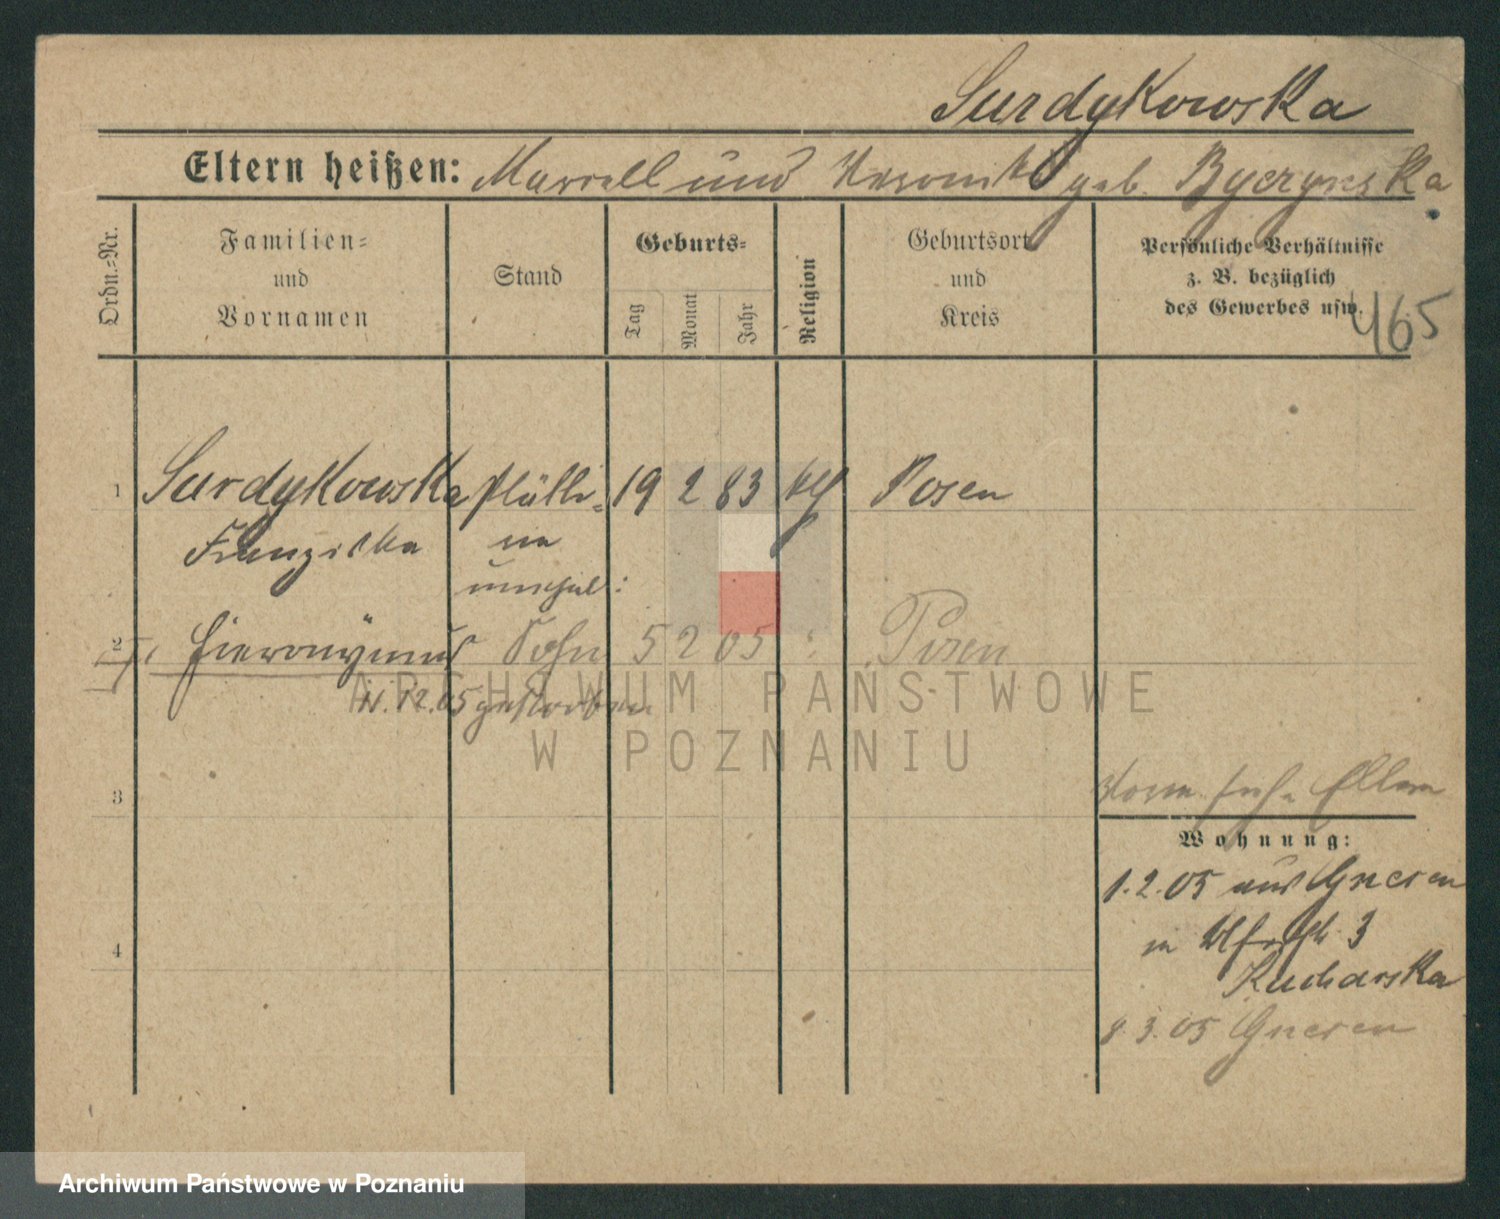 Surdykowska
Eltern heißen: Marcell und Veronika geb. Byczynska
Ordn.-Nr.
Familien-
und
Vornamen
Stand
Geburts-
Tag
Monat
Jahr
Religion
Geburtsort
und
Kreis
Persönliche Verhältnisse
z. B. bezüglich
des Gewerbes usw.
465
1 Surdykowska Plätte- 19 2 83 kth Posen
Franziska rin
unehel:
2 Hieronymus Sohn 5 2 05 " Posen
11.12.05 gestorben
3
Eltern
Wohnung:
1.2.05 aus Gnesen
in 3
Kucharska
4
8.3.05 Gnesen
ARCHIWUM PAŃSTWOWE
W POZNANIU
Archiwum Państwowe w Poznaniu